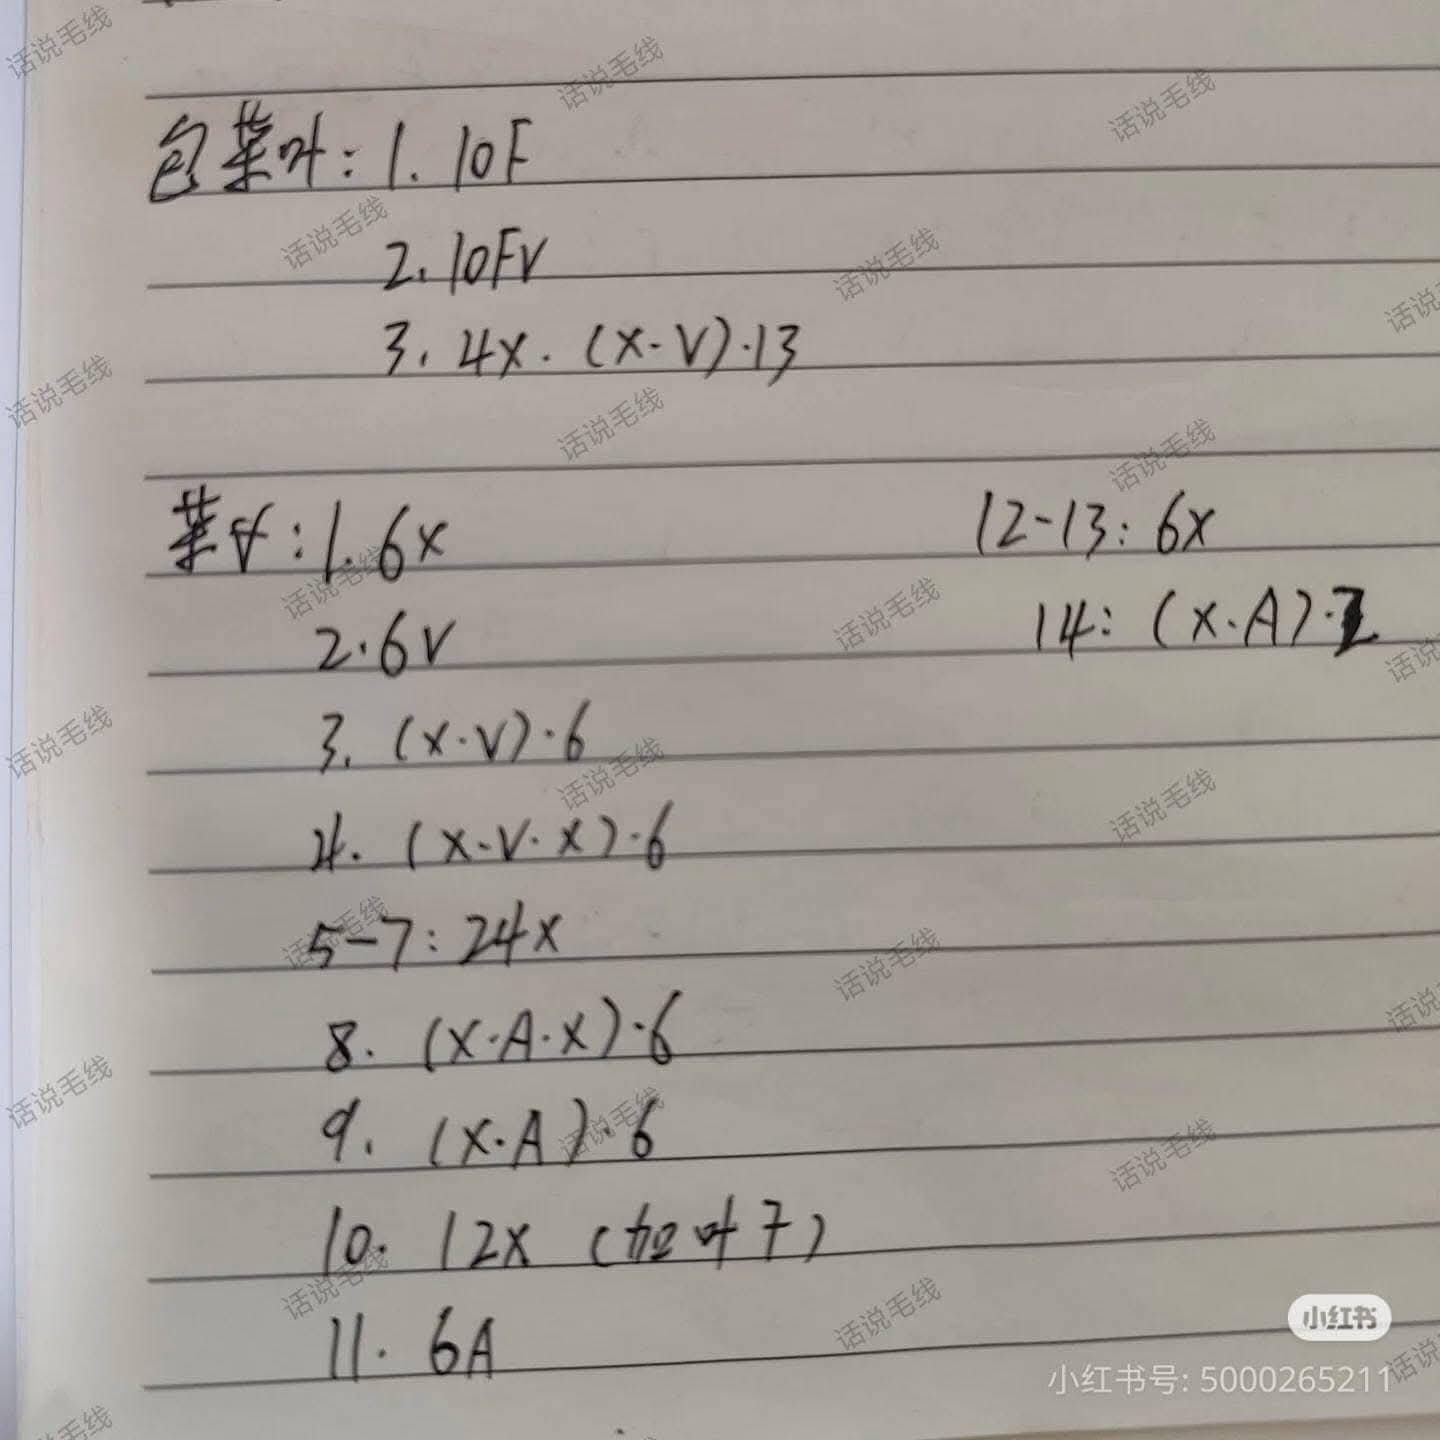 包菜叶: 1. 10F
2. 10FV
3. 4X. (X·V)·13
菜: 1. 6X
2. 6V
3. (X·V)·6
4. (X·V·X)·6
5-7: 24X
8. (X·A·X)·6
9. (X·A)·6
10. 12X (加叶子)
11. 6A
12-13: 6X
14: (X·A)·2
话说毛线
小红书
小红书号: 5000265211